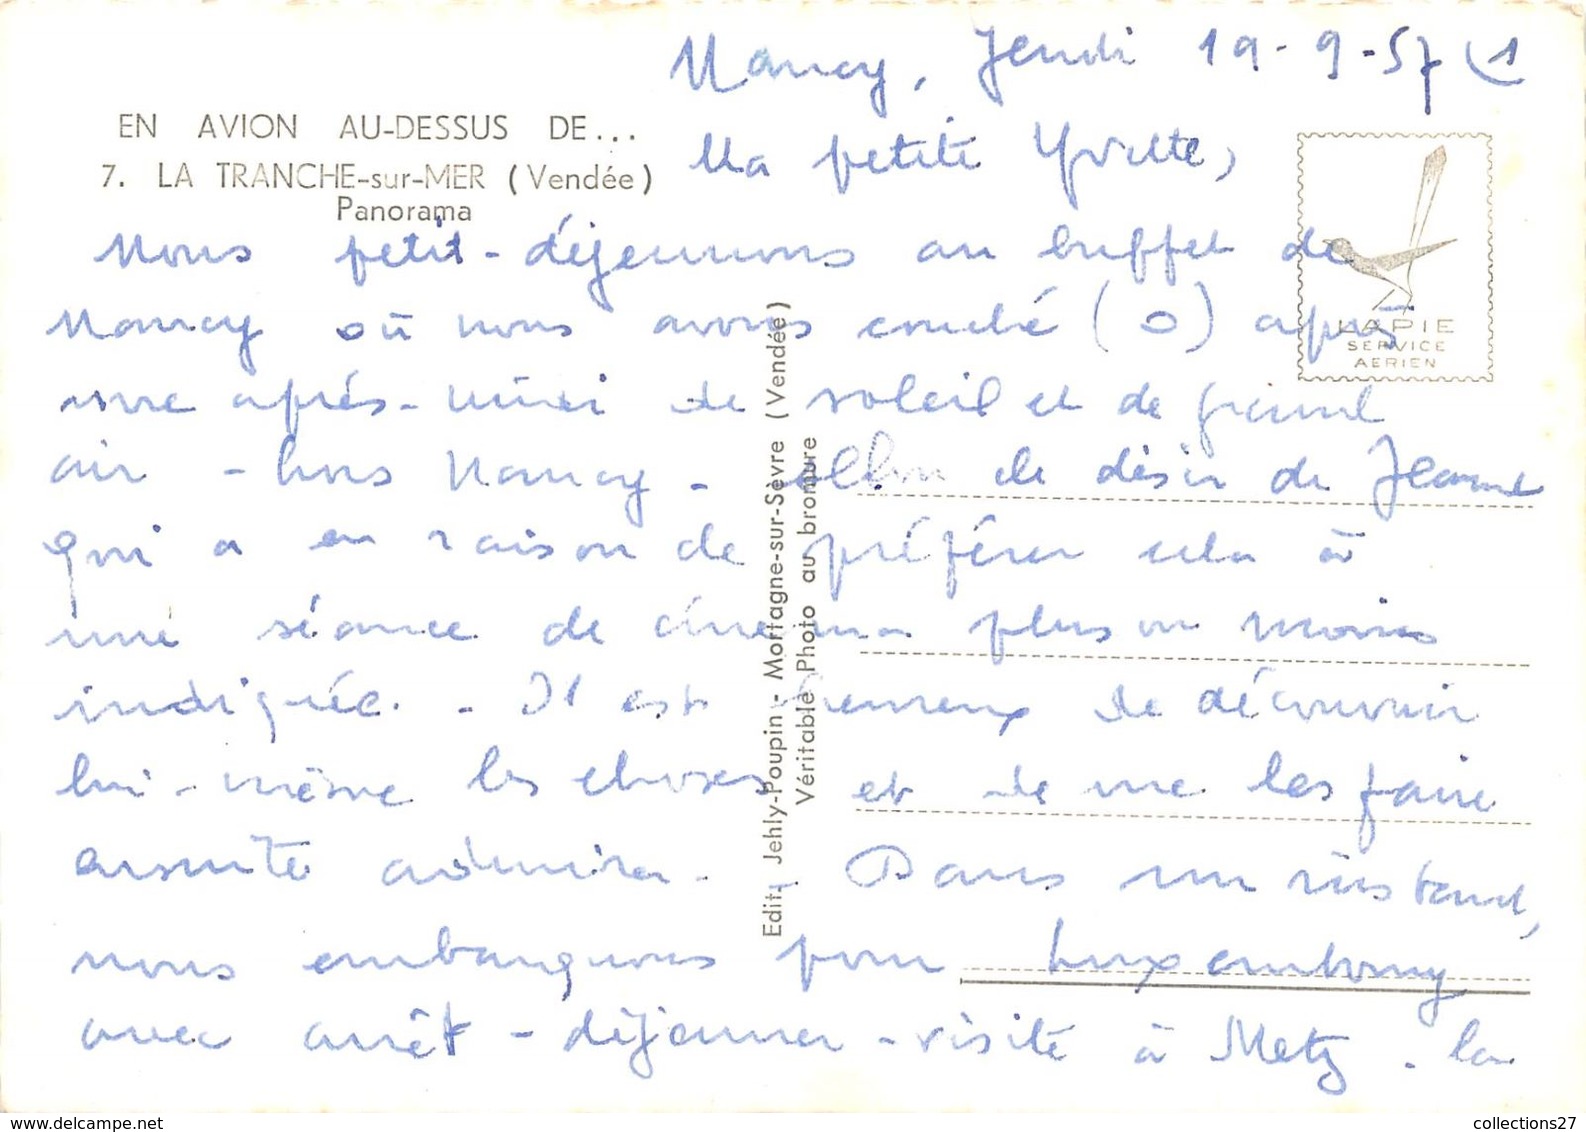 Nancy, Jeudi 19-9-57 (1
EN AVION AU-DESSUS DE...
7. LA TRANCHE-sur-MER (Vendée)
Panorama
Ma petite Yvette,
LAPIE
SERVICE
AERIEN
Nous petit-déjeunons au buffet de
Nancy où nous avons couché (0) après
une après-midi de soleil et de grand
air - hors Nancy - selon le désir de Jeanne
qui a eu raison de préférer cela à
une séance de cinéma plus ou moins
indiquée. - Il est heureux de découvrir
lui-même les choses et de me les faire
ensuite admirer. Dans un instant,
nous embarquons pour Luxembourg
avec arrêt - déjeuner - visite à Metz. la
Edit. Jehly-Poupin - Mortagne-sur-Sèvre (Vendée)
Véritable Photo au bromure
collections27